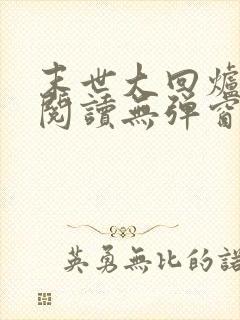 末世大回爐
閱讀無彈窗
英勇無比的諾